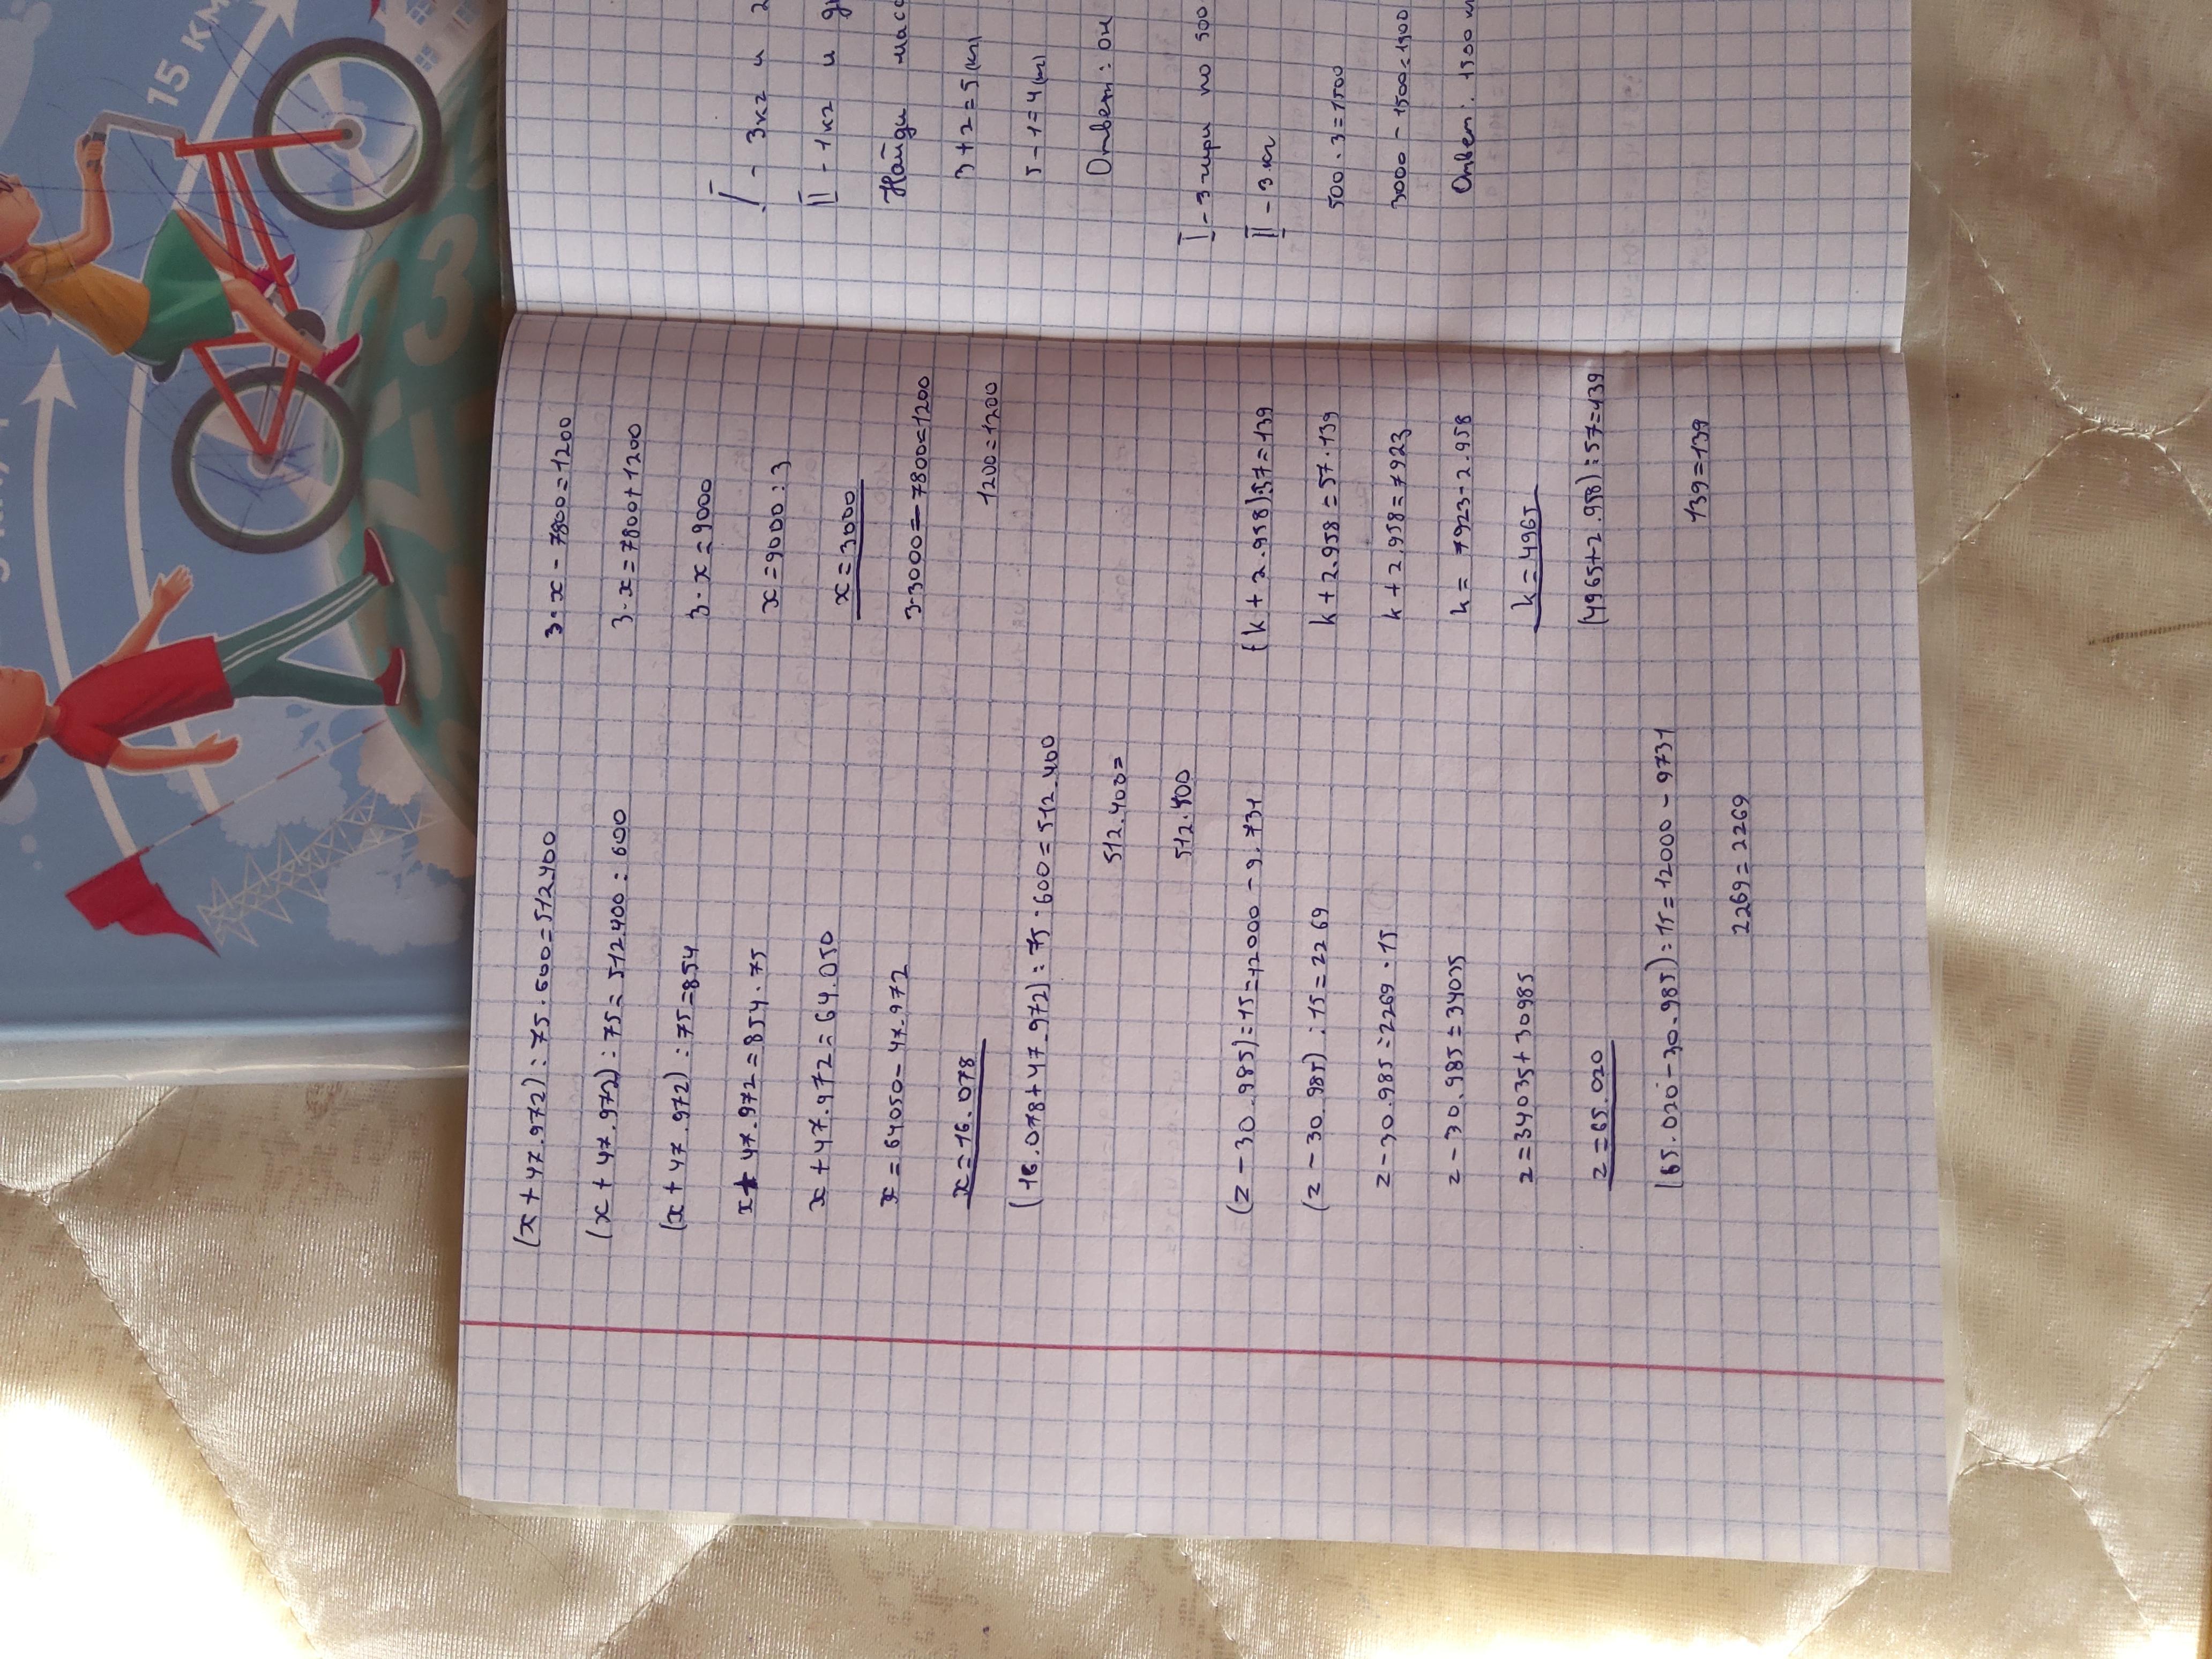 (x+47.972):75·600=512400
(x+47.972):75=512400:600
(x+47.972):75=854
x+47.972=854·75
x+47.972=64.050
x=64050-47.972
x=16.078
(16.078+47.972):75·600=512.400
512.400=
512.400
(z-30.985):15=12000-9.731
(z-30.985):15=2269
z-30.985=2269·15
z-30.985=34035
z=34035+30985
z=65.020
(65.020-30.985):15=12000-9731
2269=2269
3·x-7800=1200
3·x=7800+1200
3·x=9000
x=9000:3
x=3000
3·3000-7800=1200
1200=1200
(k+2.958):57=139
k+2.958=57·139
k+2.958=7923
k=7923-2.958
k=4965
(4965+2.958):57=139
139=139
I-3кг и 2
II-1кг и
Найди масс
3+2=5(кг)
5-1=4(кг)
Ответ: он
I-3 гири по 500
II-3 кг
500·3=1500
3000-1500=1500
Ответ: 1500
15 КМ